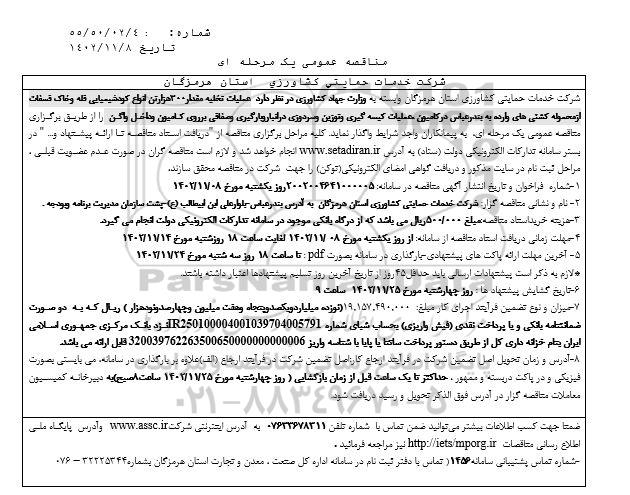 شماره: ۵۵/۵۰/۰۲/۴
تاریخ ۱۴۰۲/۱۱/۸
مناقصه عمومی یک مرحله ای
شرکت خدمات حمایتی کشاورزی استان هرمزگان
شرکت خدمات حمایتی کشاورزی استان هرمزگان وابسته به وزارت جهاد کشاورزی در نظر دارد عملیات تخلیه مقدار۳۰۰هزارتن انواع کودشیمیایی فله وخاک فسفات
ازمحموله کشتی های وارده به بندرعباس درکامیون ،عملیات کیسه گیری وتوزین وسردوزی درانباروبارگیری وصفافی برروی کامیون وداخل واگن را از طریق برگزاری
مناقصه عمومی یک مرحله ای، به پیمانکاران واجد شرایط واگذار نماید. کلیه مراحل برگزاری مناقصه از "دریافت اسناد مناقصه تا ارائه پیشنهاد و... " در
بستر سامانه تدارکات الکترونیکی دولت (ستاد) به آدرس www.setadiran.ir انجام خواهد شد و لازم است مناقصه گران در صورت عدم عضویت قبلی ،
مراحل ثبت نام در سایت مذکور و دریافت گواهی امضای الکترونیکی(توکن) را جهت شرکت در مناقصه محقق سازند.
۱-شماره فراخوان و تاریخ انتشار آگهی مناقصه در سامانه: ۲۰۰۲۰۰۴۶۴۱۰۰۰۰۰۵روز یکشنبه مورخ ۱۴۰۲/۱۱/۰۸
۲- نام و نشانی مناقصه گزار: شرکت خدمات حمایتی کشاورزی استان هرمزگان به آدرس بندرعباس-بلوارعلی ابن ابیطالب (ع)-پشت سازمان مدیریت برنامه وبودجه .
۳-هزینه خریداسناد مناقصه:مبلغ ۵۰۰/۰۰۰ریال می باشد که از درگاه بانکی موجود در سامانه تدارکات الکترونیکی دولت انجام می گیرد.
۴-مهلت زمانی دریافت اسناد مناقصه از سامانه: از روز یکشنبه مورخ ۰۸ /۱۴۰۲/۱۱ لغایت ساعت ۱۸ روزشنبه مورخ ۱۴۰۲/۱۱/۱۴
۵- آخرین مهلت ارائه پاکت های پیشنهادی-بارگذاری در سامانه بصورت pdf : تا ساعت ۱۸ روز سه شنبه مورخ ۱۴۰۲/۱۱/۲۴
*لازم به ذکر است پیشنهادات ارسالی باید حداقل۴۵روز از تاریخ آخرین روز تسلیم پیشنهادها اعتبار داشته باشند.
۶-تاریخ گشایش پیشنهاد ها : روز چهارشنبه مورخ ۱۴۰۲/۱۱/۲۵ ساعت ۹
۷-میزان و نوع تضمین فرآیند اجرای کار مبلغ: ۱۹,۱۵۷,۴۹۰,۰۰۰(نوزده میلیاردویکصدوپنجاه وهفت میلیون وچهارصدونودهزار ) ریال که به دو صورت
ضمانتنامه بانکی و یا پرداخت نقدی (فیش واریزی) بحساب شبای شماره IR250100004001039704005791نزد بانک مرکزی جمهوری اسلامی
ایران بنام خزانه داری کل از طریق دستور پرداخت ساتنا یا پایا با شناسه واریز 320039762263500650000000000006 قابل ارائه می باشد.
۸-آدرس و زمان تحویل اصل تضمین شرکت در فرآیند ارجاع کار:اصل تضمین شرکت در فرآیند ارجاع (الف)علاوه بر بارگذاری در سامانه، می بایستی بصورت
فیزیکی و در پاکت دربسته و ممهور ، حداکثر تا یک ساعت قبل از زمان بازگشایی ( روز چهارشنبه مورخ ۱۴۰۲/۱۱/۲۵ ساعت۸صبح)به دبیرخانه کمیسیون
معاملات مناقصه گزار در آدرس فوق الذکر تحویل و رسید دریافت شود.
ضمنا جهت کسب اطلاعات بیشتر می‌توانید ضمن تماس با شماره تلفن ۰۷۶۳۳۶۷۸۳۱۱ به آدرس اینترنتی شرکت www.assc.ir وآدرس پایگاه ملی
اطلاع رسانی مناقصات http://iets/mporg.ir نیز مراجعه فرمائید .
-شماره تماس پشتیبانی سامانه۱۴۵۶( تماس با دفتر ثبت نام در سامانه اداره کل صنعت ، معدن و تجارت استان هرمزگان بشماره۳۲۲۲۵۳۴۴ – ۰۷۶
۰۲۱-۸۸۳۴۹۶۷۰-۵